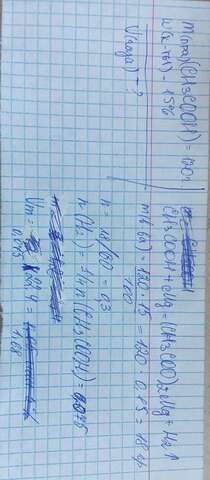 m(р-ра)(CH3COOH) = 120г
w(к-ты) - 15%
V(газа) - ?
CH3COOH + Mg = (CH3COO)2Mg + H2↑
m(к-ты) = 120 · 15 / 100 = 120 · 0.15 = 18 гр
n = 18/60 = 0.3
n(H2) = 1/4 n(CH3COOH) = 0,075
Vm = 0.075 · 22,4 = 1.68